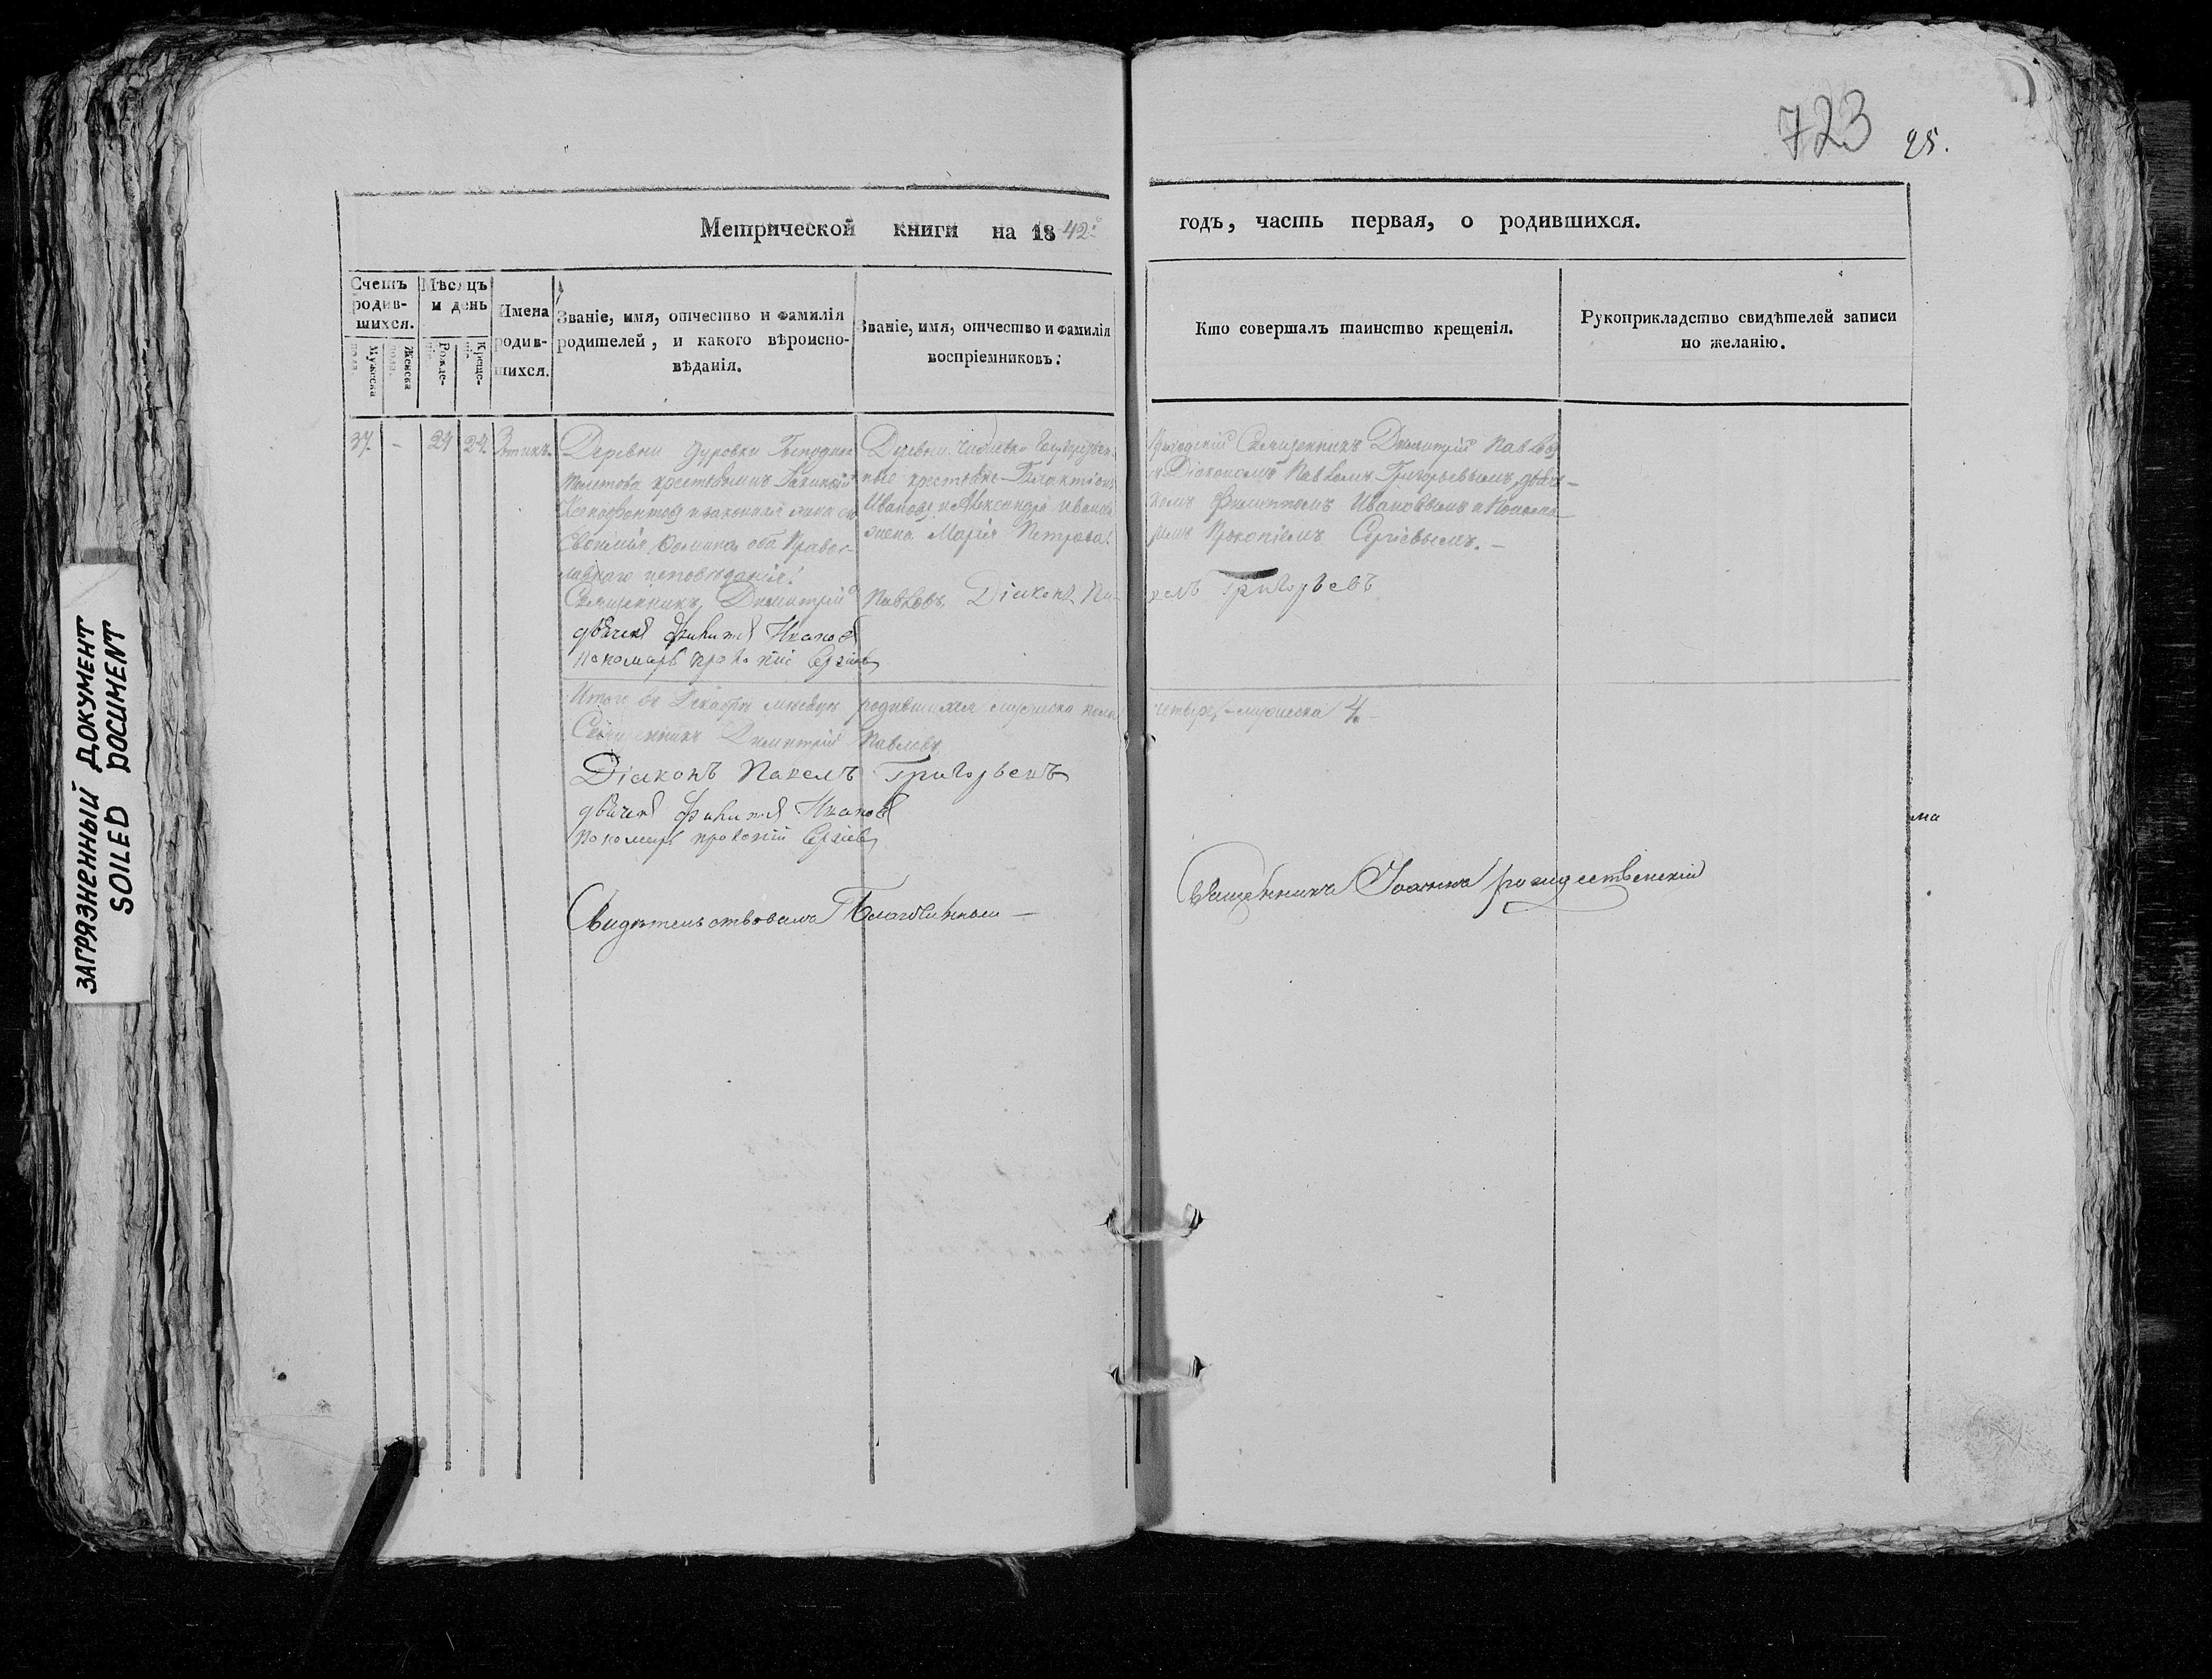 723 25.
Метрической книги на 1842 годъ, часть первая, о родившихся.
Счетъ родив-шихся.
Мужеска пола.
Женска пола.
Мѣсяцъ и день
Рожде-нія.
Креще-нія.
Имена родив-шихся.
Званіе, имя, отчество и фамилія родителей, и какого вѣроиспо-вѣданія.
Званіе, имя, отчество и фамилія воспріемниковъ.
Кто совершалъ таинство крещенія.
Рукоприкладство свидѣтелей записи по желанію.
37. - 24 24.
Деревни Дуровки Господина
крестьянинъ
Ксенофонтовъ и законная жена его
оба Правос-
лавнаго исповѣданія.
Деревни
ные крестьяне Галактіонъ
Ивановъ и Александра Иванова
жена Марія Петрова.
Приходскій Священникъ Димитрій Павловъ
съ Діакономъ Павломъ Григорьевымъ, дьяч-
комъ Филиппомъ Ивановымъ и Понома-
ремъ Прокопіемъ Сергіевымъ. -
Священникъ Димитрій Павловъ, Діаконъ Па-велъ Григорьевъ
дьячекъ Филиппъ Ивановъ
пономарь Прокопій Сергіевъ
Итого въ Декабрѣ мѣсяцѣ родившихся мужеска пола четыре, - мужеска 4. -
Священникъ Димитрій Павловъ
Діаконъ Павелъ Григорьевъ
дьячекъ Филиппъ Ивановъ
пономарь прокопій Сергіевъ
Свидѣтельствовалъ Благочинный -
Священникъ Іоаннъ рождественскій
ма
ЗАГРЯЗНЕННЫЙ ДОКУМЕНТ
SOILED DOCUMENT